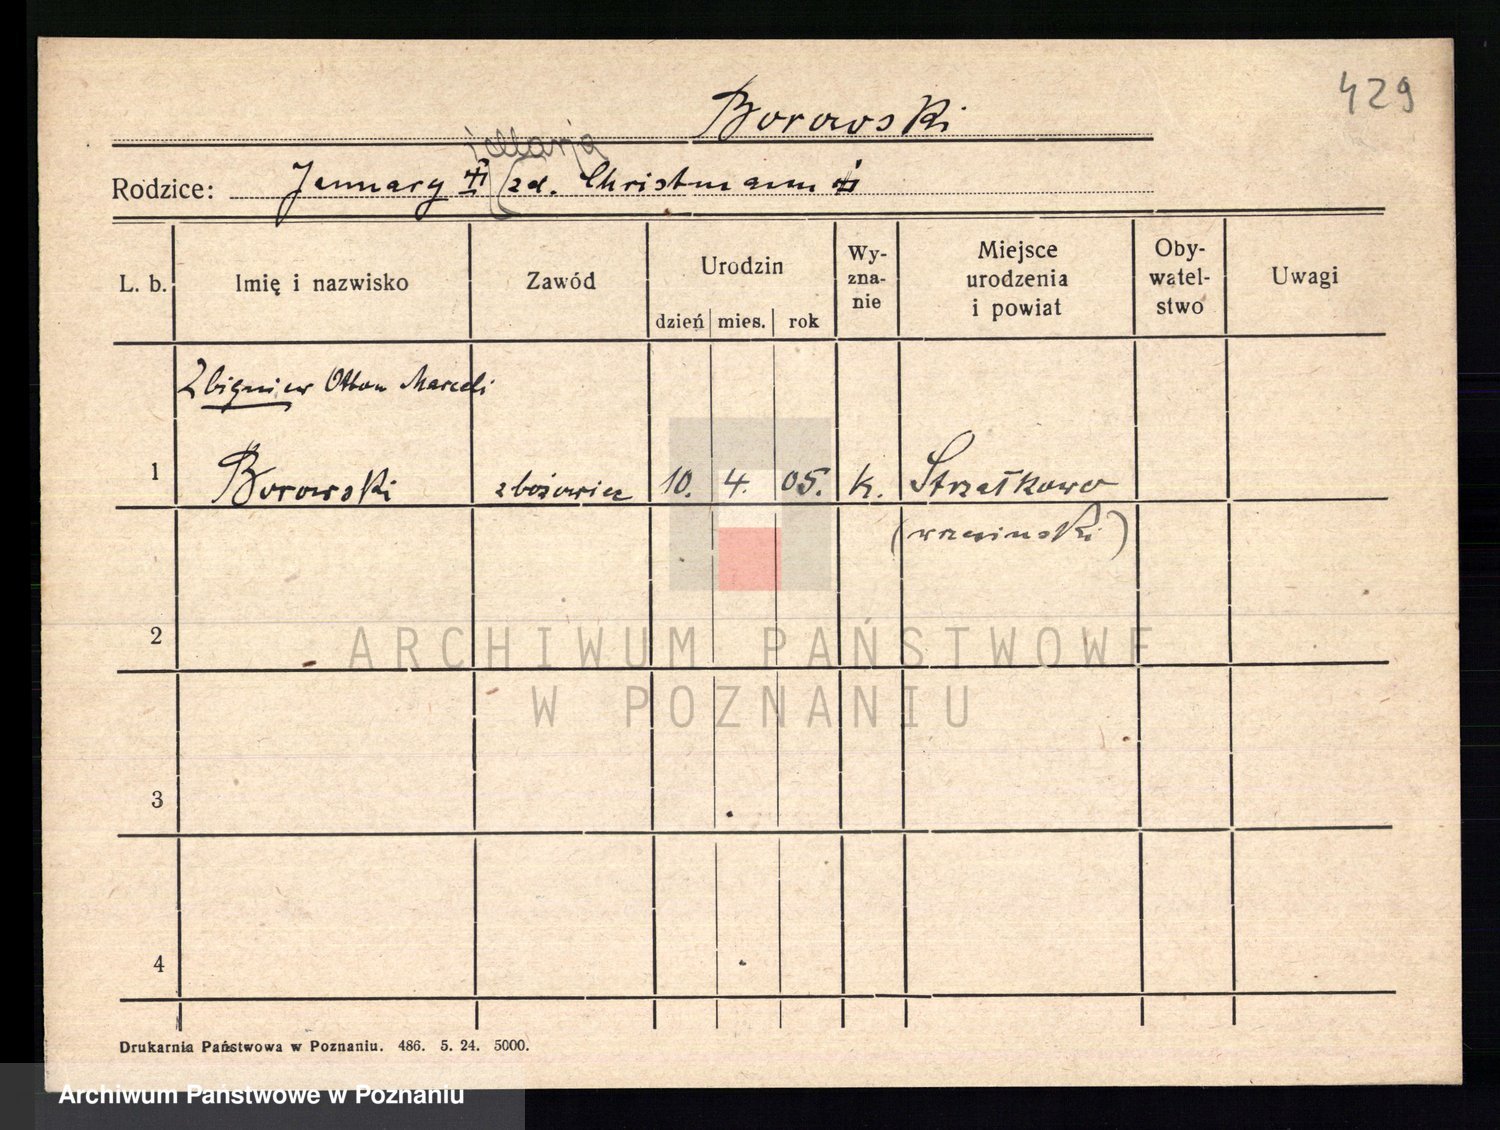 429
Borowski
i Marja
Rodzice: January (zd. Christmann
L. b. Imię i nazwisko Zawód Urodzin dzień mies. rok Wy-zna-nie Miejsce urodzenia i powiat Oby-watel-stwo Uwagi
Zbigniew Otton Marceli
1 Borowski zbożowiec 10. 4. 05. k. Strzałkowo
(wrzesiński)
2
ARCHIWUM PAŃSTWOWE
W POZNANIU
3
4
Drukarnia Państwowa w Poznaniu. 486. 5. 24. 5000.
Archiwum Państwowe w Poznaniu